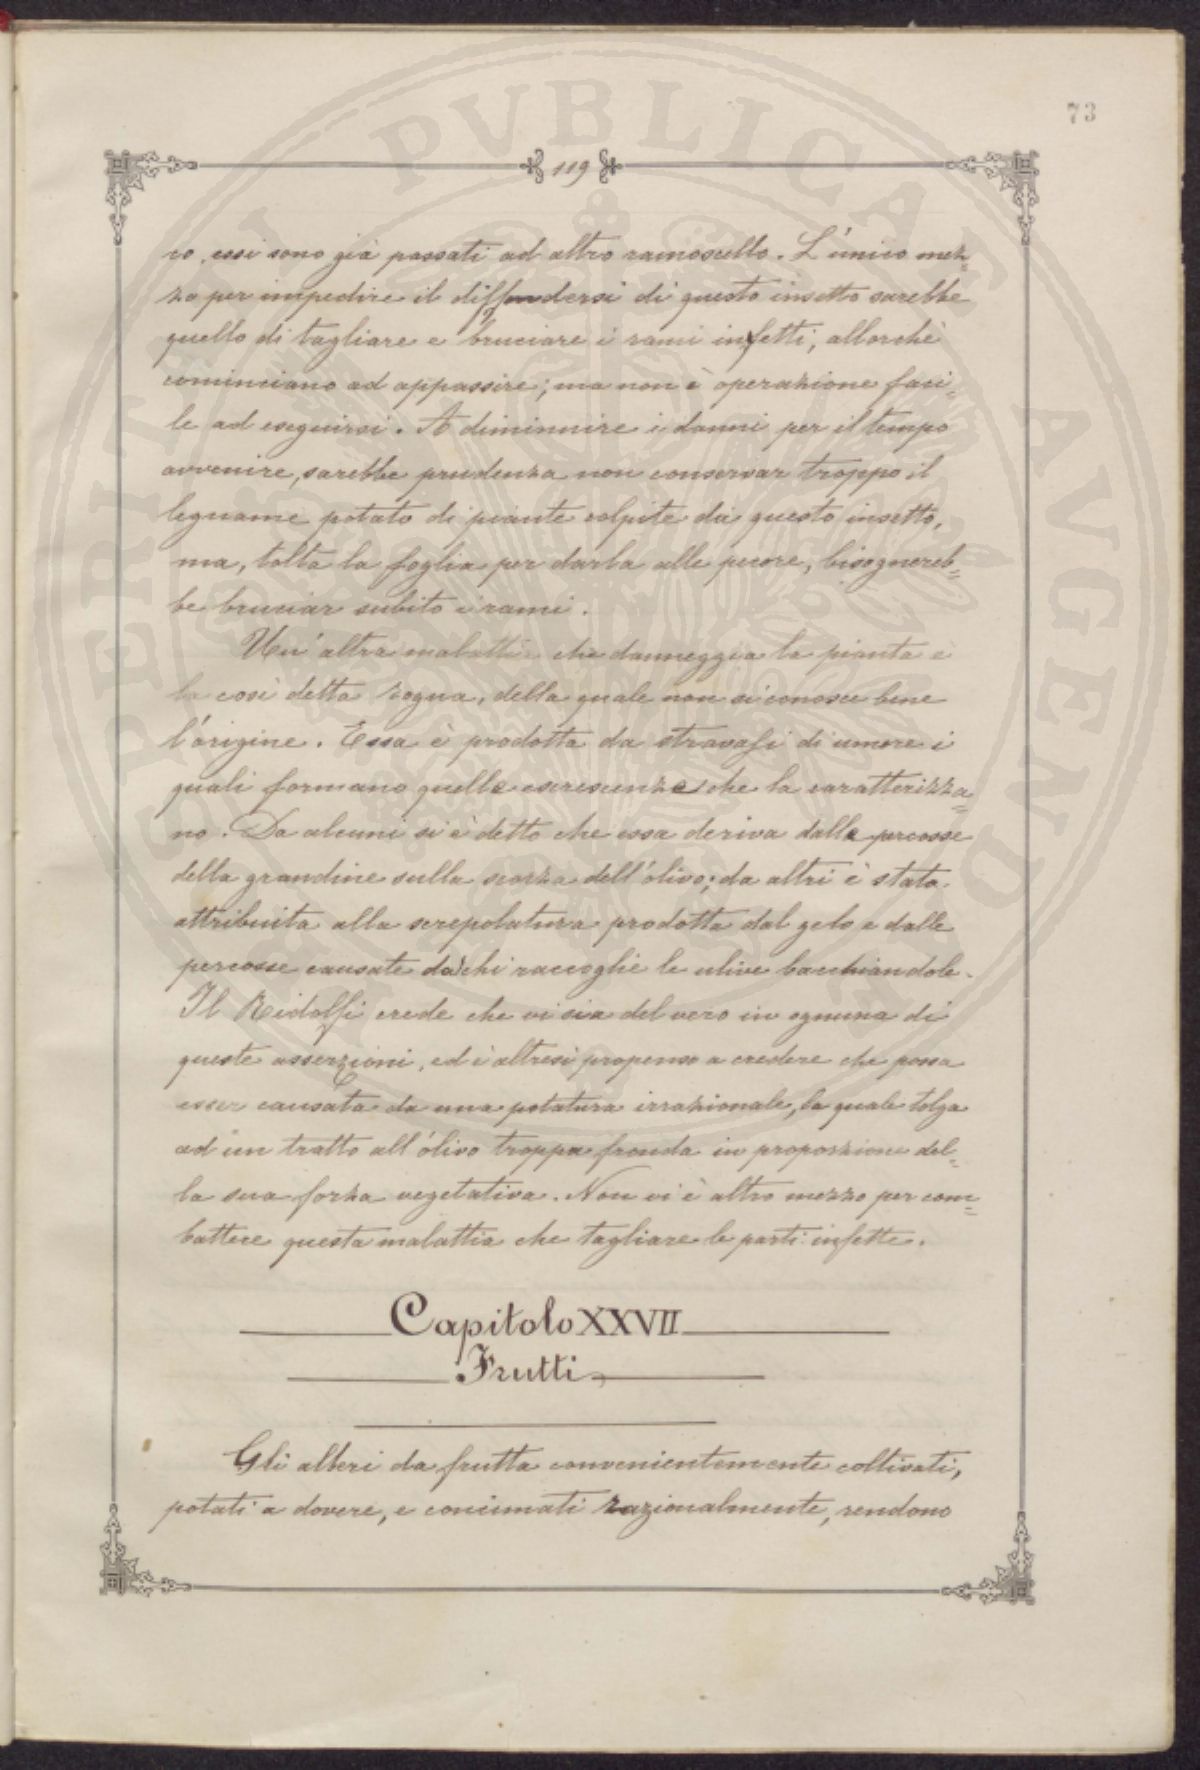 73
119
co, essi sono già passati ad altro ramoscello. L'unico mez=
zo per impedire il diffondersi di questo insetto sarebbe
quello di tagliare e bruciare i rami infetti, allorchè
cominciano ad appassire; ma non è operazione faci=
le ad eseguirsi. A diminuire i danni per il tempo
avvenire, sarebbe prudenza non conservar troppo il
legname potato di piante colpite da questo insetto,
ma, tolta la foglia per darla alle pecore, bisognereb=
be bruciar subito i rami.
Un'altra malattia che danneggia la pianta è
la così detta rogna, della quale non si conosce bene
l'origine. Essa è prodotta da stravasi di umore i
quali formano quelle escrescenze che la caratterizza=
no. Da alcuni si è detto che essa deriva dalle percosse
della grandine sulla scorza dell'olivo; da altri è stata
attribuita alla screpolatura prodotta dal gelo e dalle
percosse causate da chi raccoglie le ulive bacchiandole.
Il Ridolfi crede che vi sia del vero in ognuna di
queste asserzioni, ed è altresì propenso a credere che possa
esser causata da una potatura irrazionale, la quale tolga
ad un tratto all'olivo troppa fronda in proporzione del=
la sua forza vegetativa. Non vi è altro mezzo per com=
battere questa malattia che tagliare le parti infette.
Capitolo XXVII
Frutti
Gli alberi da frutta convenientemente coltivati,
potati a dovere, e concimati razionalmente, rendono
PVBLICAE AVGENDAE
PROSPERITATI